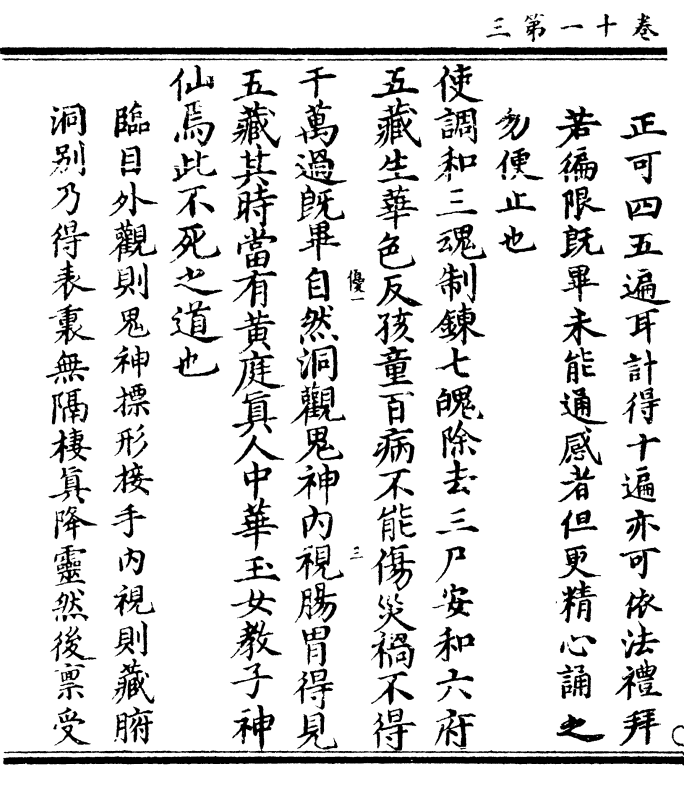 卷十一第三
正可四五遍耳計得十遍亦可依法禮拜
若徧限旣畢未能通感者但更精心誦之
勿便止也
使調和三魂制錬七魄除去三尸安和六府
五藏生華色反孩童百病不能傷災禍不得
干萬過旣畢自然洞觀鬼神内視腸胃得見
優一
三
五藏其時當有黄庭眞人中華玉女教子神
仙焉此不死之道也
臨目外觀則鬼神摽形接手内視則藏腑
洞别乃得表裏無隔棲眞降靈然後禀受